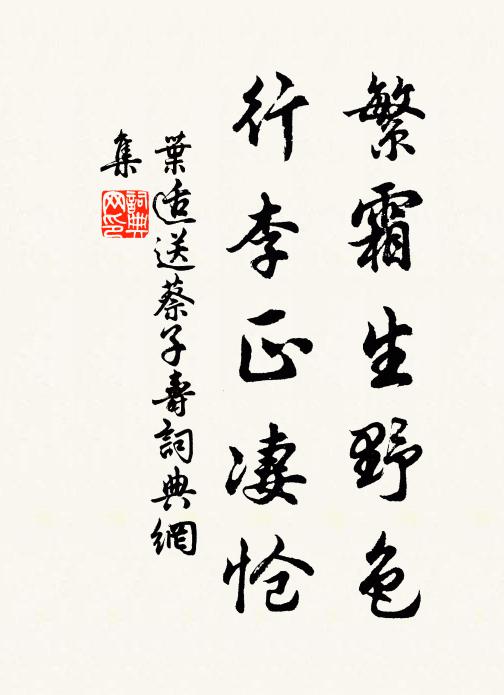 繁霜生野色
行李正凄怆
葉适送蔡子壽詞典網
集
詞典
网印